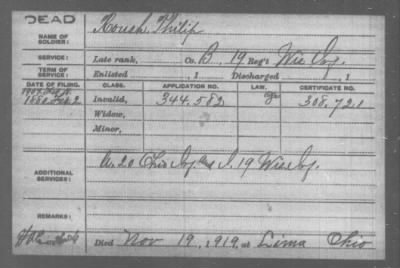 DEAD
NAME OF SOLDIER: Roush, Philip
SERVICE: Late rank, Co. B, 19 Reg't Wis Inf.
TERM OF SERVICE: Enlisted , 1 Discharged , 1
DATE OF FILING. CLASS. APPLICATION NO. LAW. CERTIFICATE NO.
1880 Invalid, 344.582 308.721
Widow,
Minor,
ADDITIONAL SERVICES: 20 Ohio Inf. I. 19 Wis Inf.
REMARKS:
Died Nov 19, 1919, at Lima Ohio